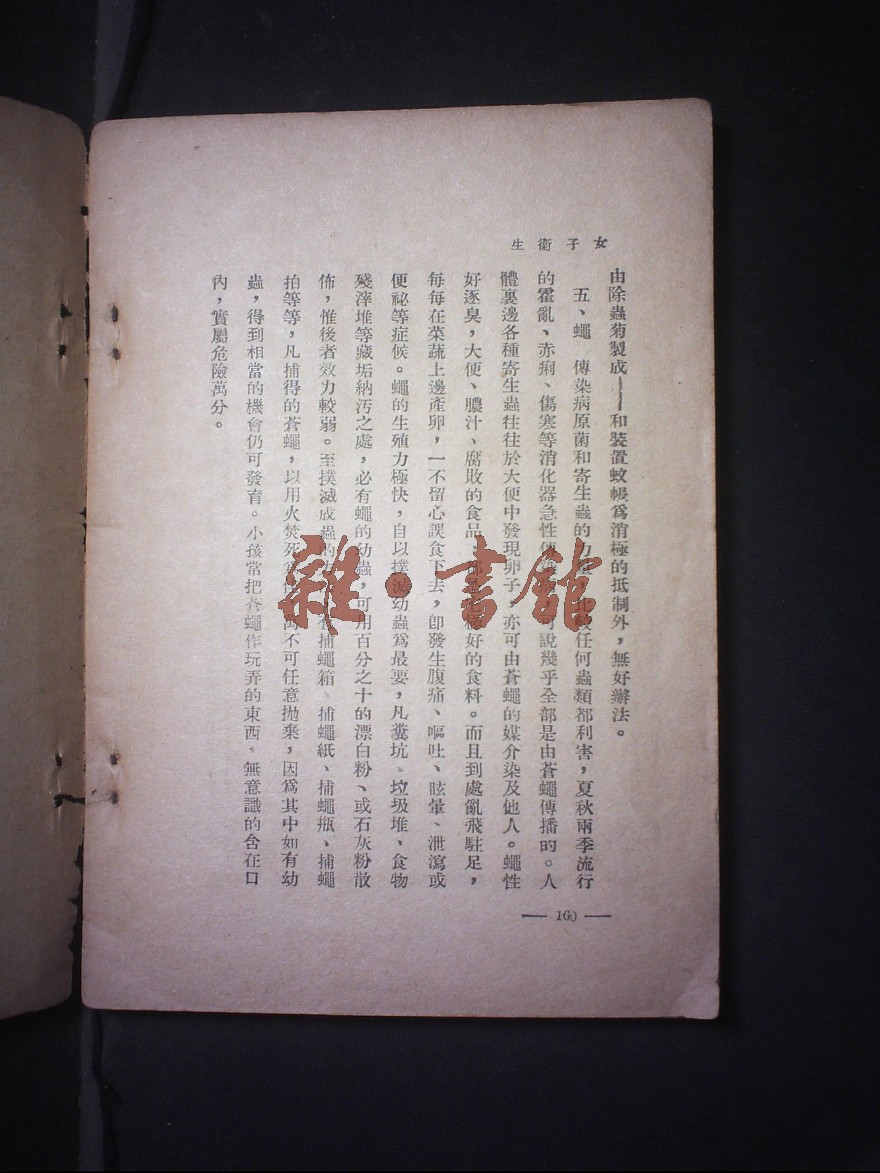 女子衞生
由除蟲菊製成——和裝置蚊帳爲消極的抵制外，無好辦法。
五、蠅　傳染病原菌和寄生蟲的力量，比較任何蟲類都利害，夏秋兩季流行
的霍亂、赤痢、傷寒等消化器急性傳染病，可說幾乎全部是由蒼蠅傳播的。人
體裏邊各種寄生蟲往往於大便中發現卵子，亦可由蒼蠅的媒介染及他人。蠅性
好逐臭，大便、膿汁、腐敗的食品，都是極好的食料。而且到處亂飛駐足，
每每在菜蔬上邊產卵，一不留心誤食下去，卽發生腹痛、嘔吐、眩暈、泄瀉或
便祕等症候。蠅的生殖力極快，自以撲滅幼蟲爲最要，凡糞坑、垃圾堆、食物
殘滓堆等藏垢納汚之處，必有蠅的幼蟲，可用百分之十的漂白粉、或石灰粉散
佈，惟後者效力較弱。至撲滅成蟲的方捕蠅箱、捕蠅紙、捕蠅瓶、捕蠅
拍等等，凡捕得的蒼蠅，以用火焚死爲佳，萬不可任意抛棄，因爲其中如有幼
蟲，得到相當的機會仍可發育。小孩常把蒼蠅作玩弄的東西，無意識的含在口
內，實屬危險萬分。
— 160 —
雜·書館